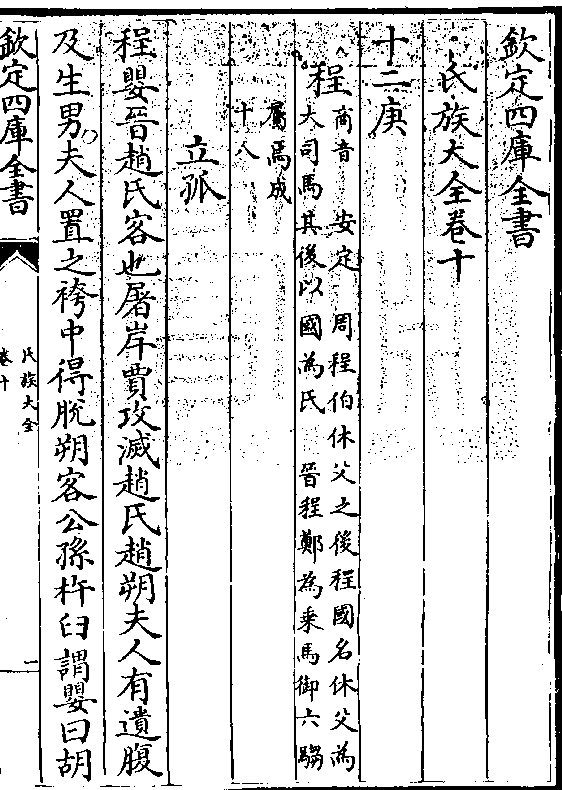 欽定四庫全書
氏族大全卷十
十二庚
程
商音　安定　周程伯休父之後程國名休父為
大司馬其後以國為氏　晉程鄭為乘馬御六騶
屬焉成
十八
立孤
程嬰晉趙氏客也屠岸賈攻滅趙氏趙朔夫人有遺腹
及生男夫人置之袴中得脫朔客公孫杵臼謂嬰曰胡
欽定四庫全書
氏族大全
卷十
一